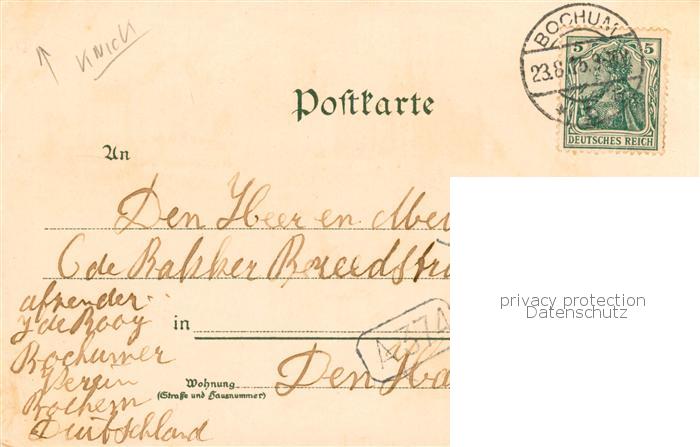 KNICK
BOCHUM
23.8.15.
5 5
DEUTSCHES REICH
Postkarte
An
Den Heer en
C de Bakker
afzender
J de Rooy
in
A 374
Bochumer
Verein
Bochem
Duitschland
Wohnung
(Straße und Hausnummer)
Den Ha
privacy protection
Datenschutz